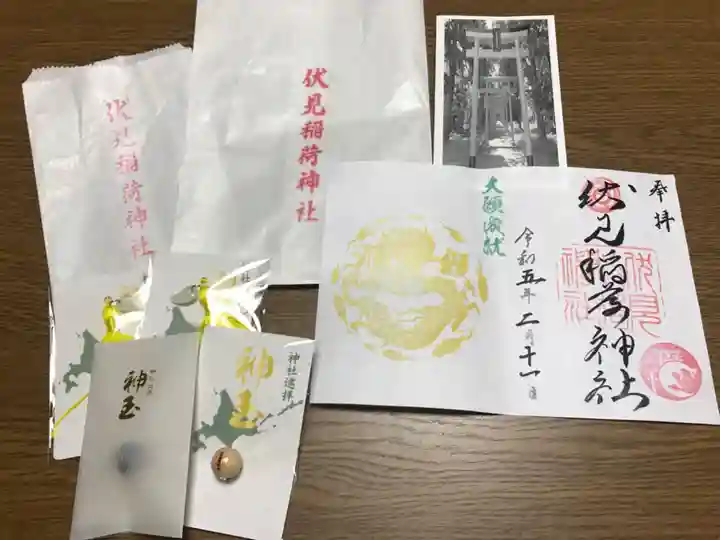 伏見稲荷神社
伏見稲荷神社
奉拝
伏見稲荷神社
伏見
稲荷
神社
大願成就
令和五年二月十一日
神玉
神社巡拝
神玉